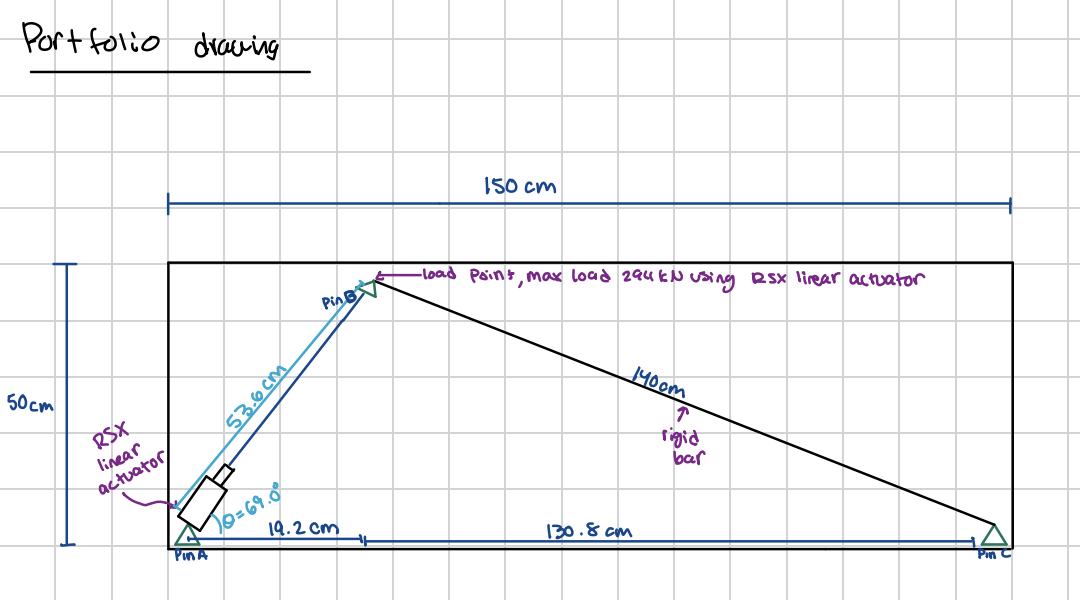 Portfolio drawing
150 cm
load Point, max load 294 kN using RSX linear actuator
Pin B
53.6cm
140cm
50cm
rigid
bar
RSX
linear
actuator
θ=69.0°
19.2 cm
130.8 cm
Pin A
Pin C